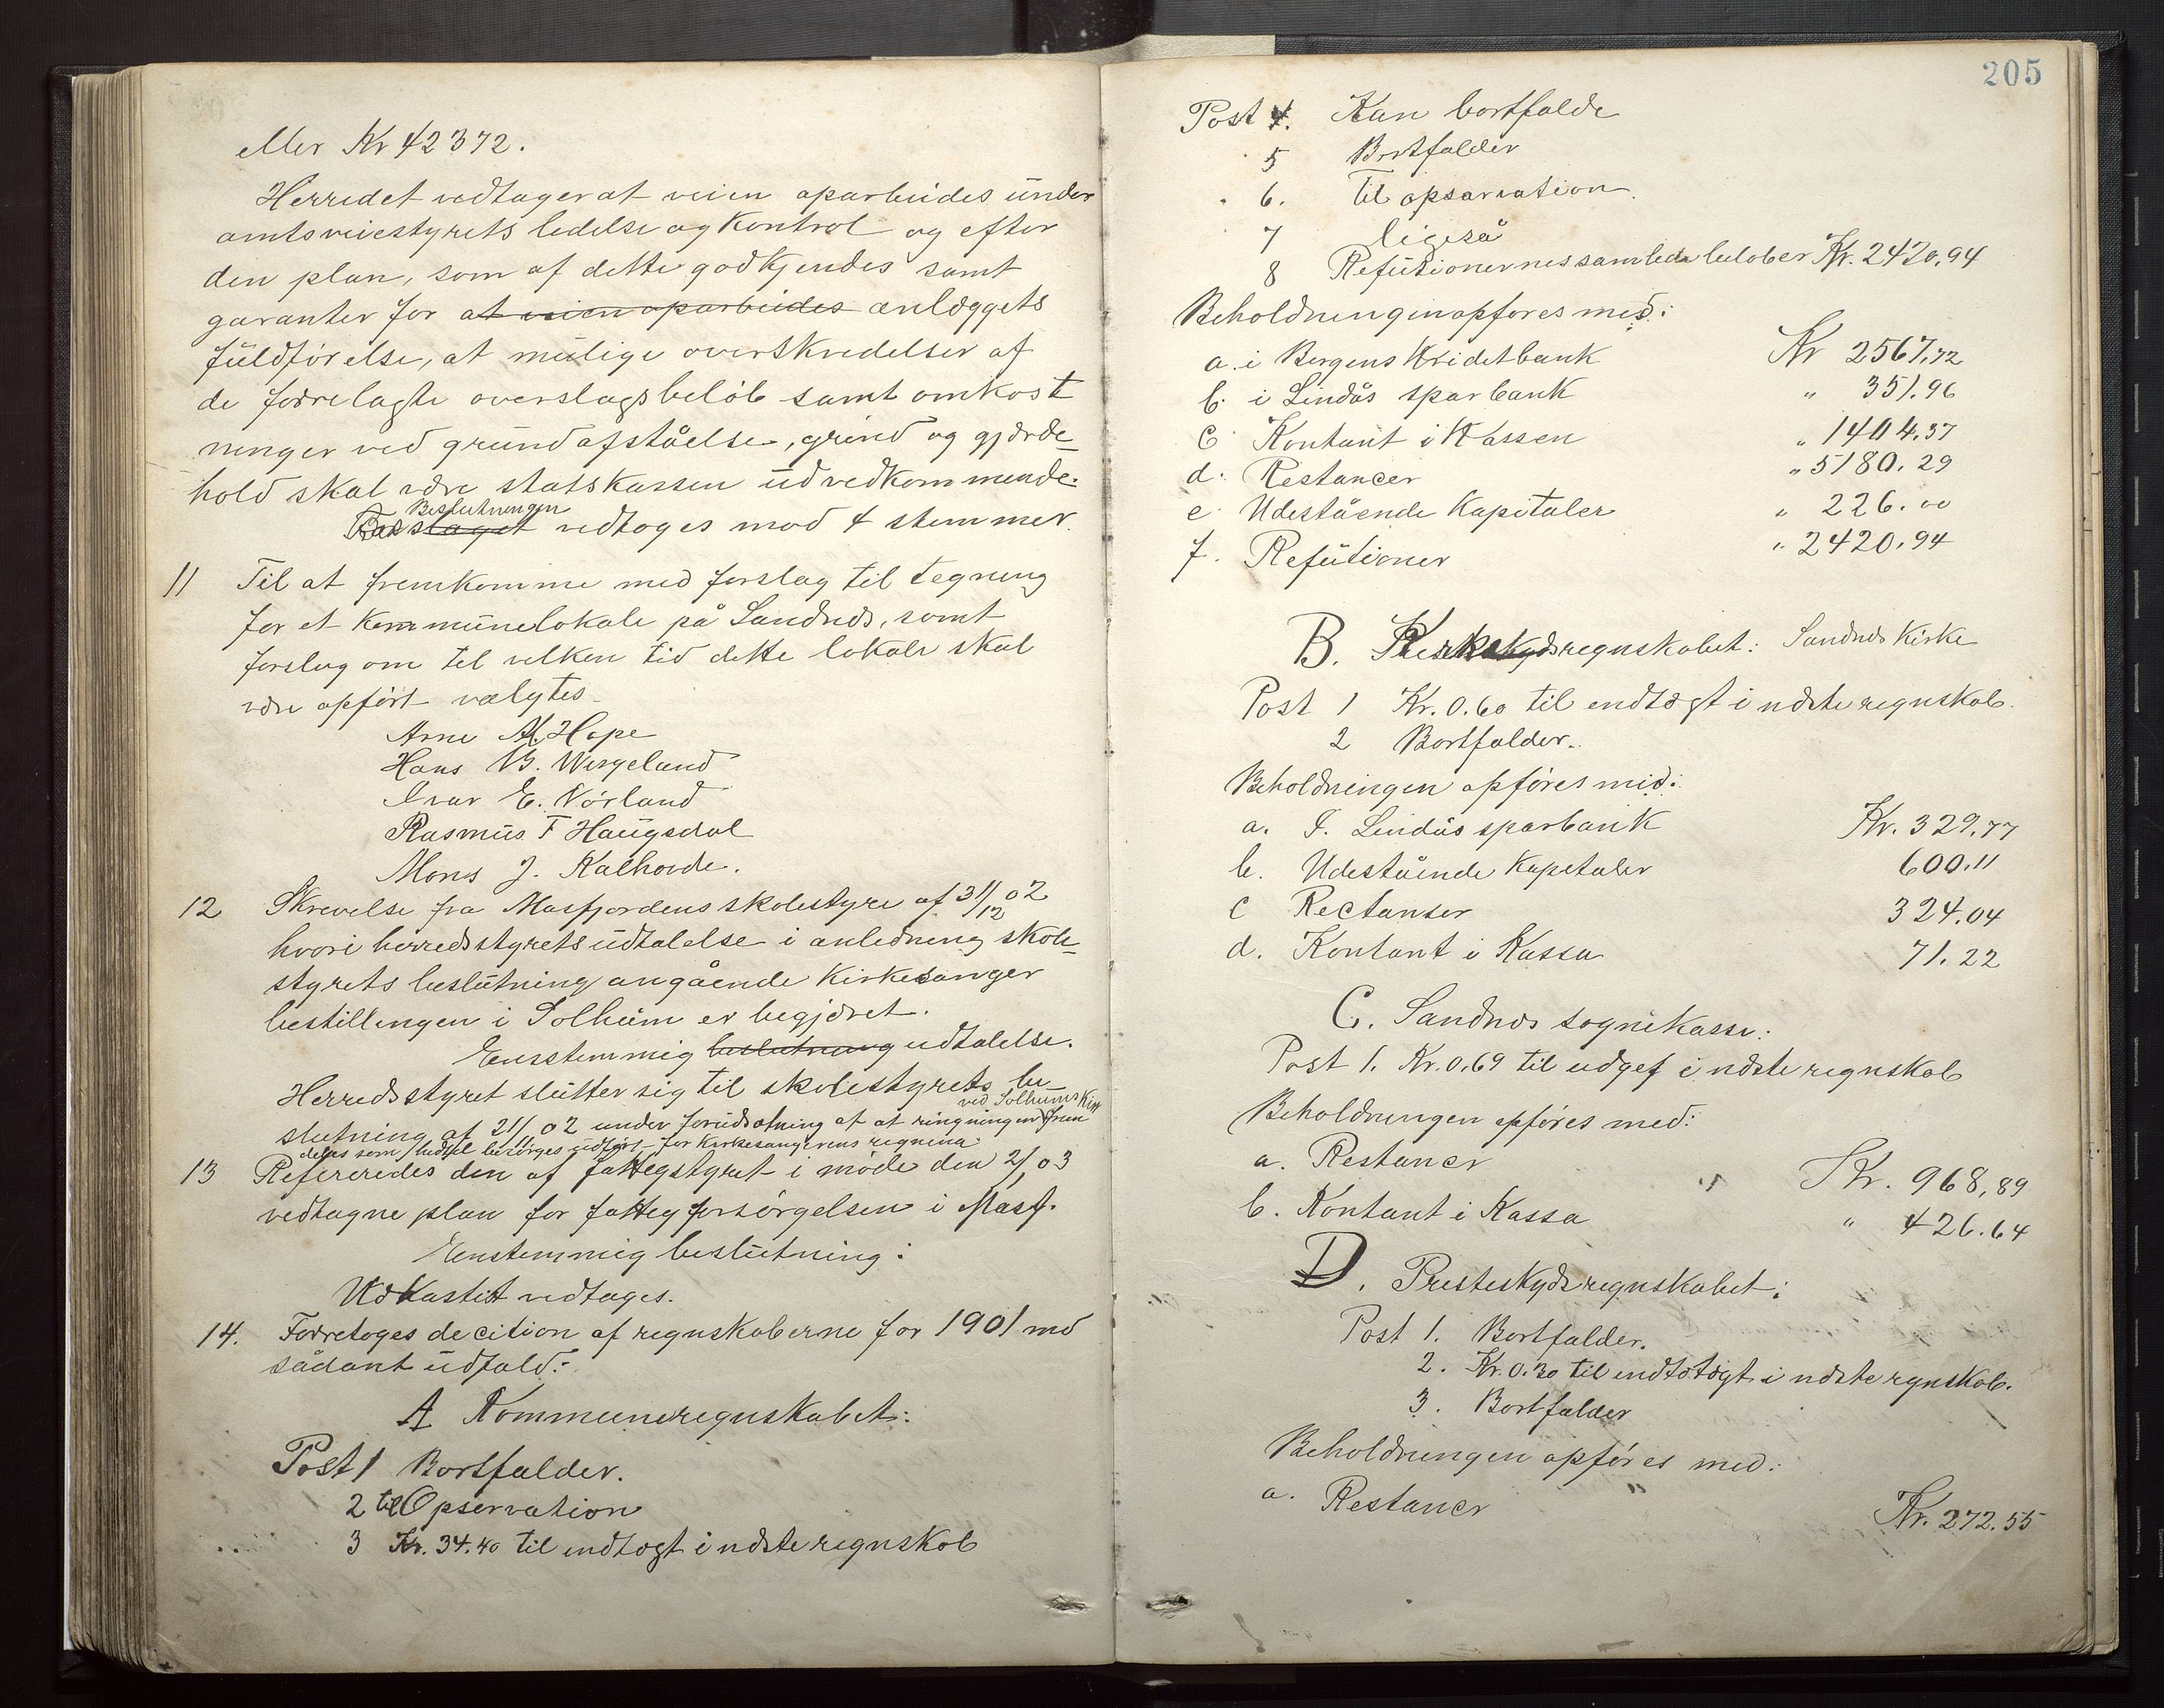 eller Kr 42372.
Herredet vedtager at veien oparbeides under
amtsveiestyrets ledelse og kontrol og efter
den plan, som af dette godkjendes samt
garanter for at veien oparbeides anlæggets
fuldførelse, at mulige overskredelser af
de forelagte overslagsbeløb samt omkost
ninger ved grundafståelse, grind og gjærde-
hold skal være statskassen uvedkommende.
Beslutningen
Forslaget vedtoges mod 4 stemmer.
11 Til at fremkomme med forslag til tegning
for et kommunelokale på Sandnæs, samt
forslag om til velken tid dette lokale skal
være opført valgtes
Arne A. Hope
Hans B. Wergeland
Ivar E. Nørland
Rasmus T Haugsdal
Mons J. Kalhovde.
12 Skrevelse fra Masfjordens skolestyre af 31/12 02
hvori herredsstyrets udtalelse i anledning skole-
styrets beslutning angående kirkesanger
bestillingen i Solheim er begjæret.
Eensstemmig beslutning udtalelse.
Herredsstyret slutter sig til skolestyrets be
slutning af 21/11 02 under forudsætning af at ringningen frem
ved Solheims kirke
deles som hidtil besørges udført for kirkesangerens regning
13 Refereredes den af fattigstyret i møde den 2/1 03
vedtagne plan for fattigforsørgelsen i Masf.
Eenstemmig beslutning:
Udkastet vedtages.
14. Foretoges decition af regnskaberne for 1901 med
sådant udfald:
A Kommuneregnskabet:
Post 1 Bortfalder.
2 til Opservation
3 Kr. 34.40 til indtægt i næste regnskab
205
Post 4. Kan bortfalde
5 Bortfalder
6. Til opsarvation.
7 ligeså
8 Refusionernes samlede beløber Kr. 2420,94
Beholdningen opføres med:
a. i Bergens Kridetbank Kr 2567,72
b. i Lindås sparbank " 351.96
c. Kontant i Kassen " 1404.37
d. Restancer " 5180.29
e. Udestående Kapitaler " 226.00
f. Refusioner " 2420,94
B. Kirkeregnskabet: Sandnæs Kirke
Post 1 Kr. 0.60 til endtægt i næste regnskab.
2 Bortfalder.
Beholdningen opføres med:
a. I. Lindås sparbank Kr. 329,77
b. Udestående Kapetaler 600.11
c Rectanser 324.04
d. Kontant i Kassa 71.22
C. Sandnæs sognekasse:
Post 1. Kr. 0.69 til udgef i næste regnskab
Beholdningen opføres med:
a. Restancer Kr. 968,89
b. Kontant i Kassa " 426.64
D. Presteskydsregnskabet:
Post 1. Bortfalder.
2. Kr. 0.30 til indtægt i næste regnskab.
3. Bortfalder
Beholdningen opføres med:
a. Restancer Kr. 272.55